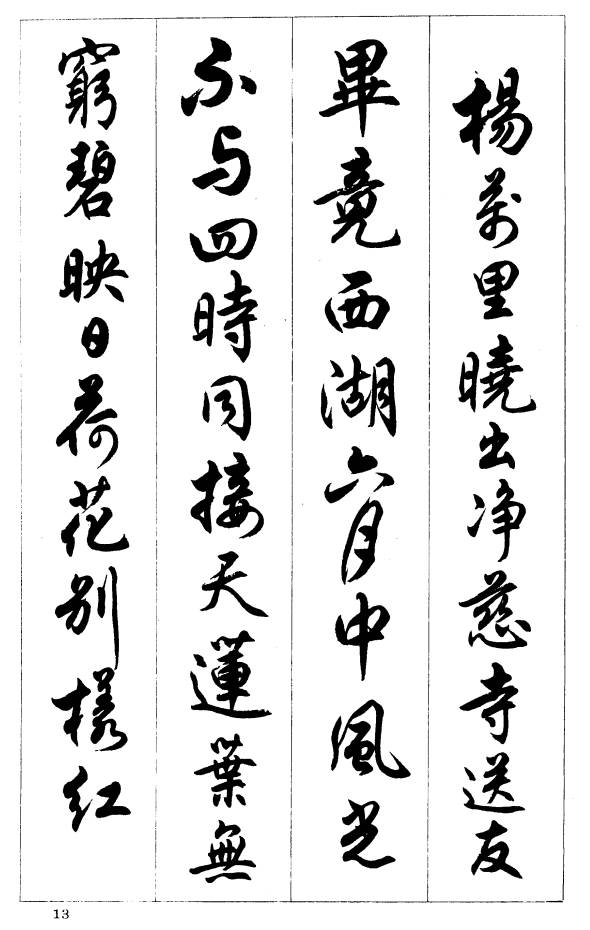 楊萬里曉出净慈寺送友
畢竟西湖六月中風光
不与四時同接天蓮葉無
窮碧映日荷花别樣紅
13